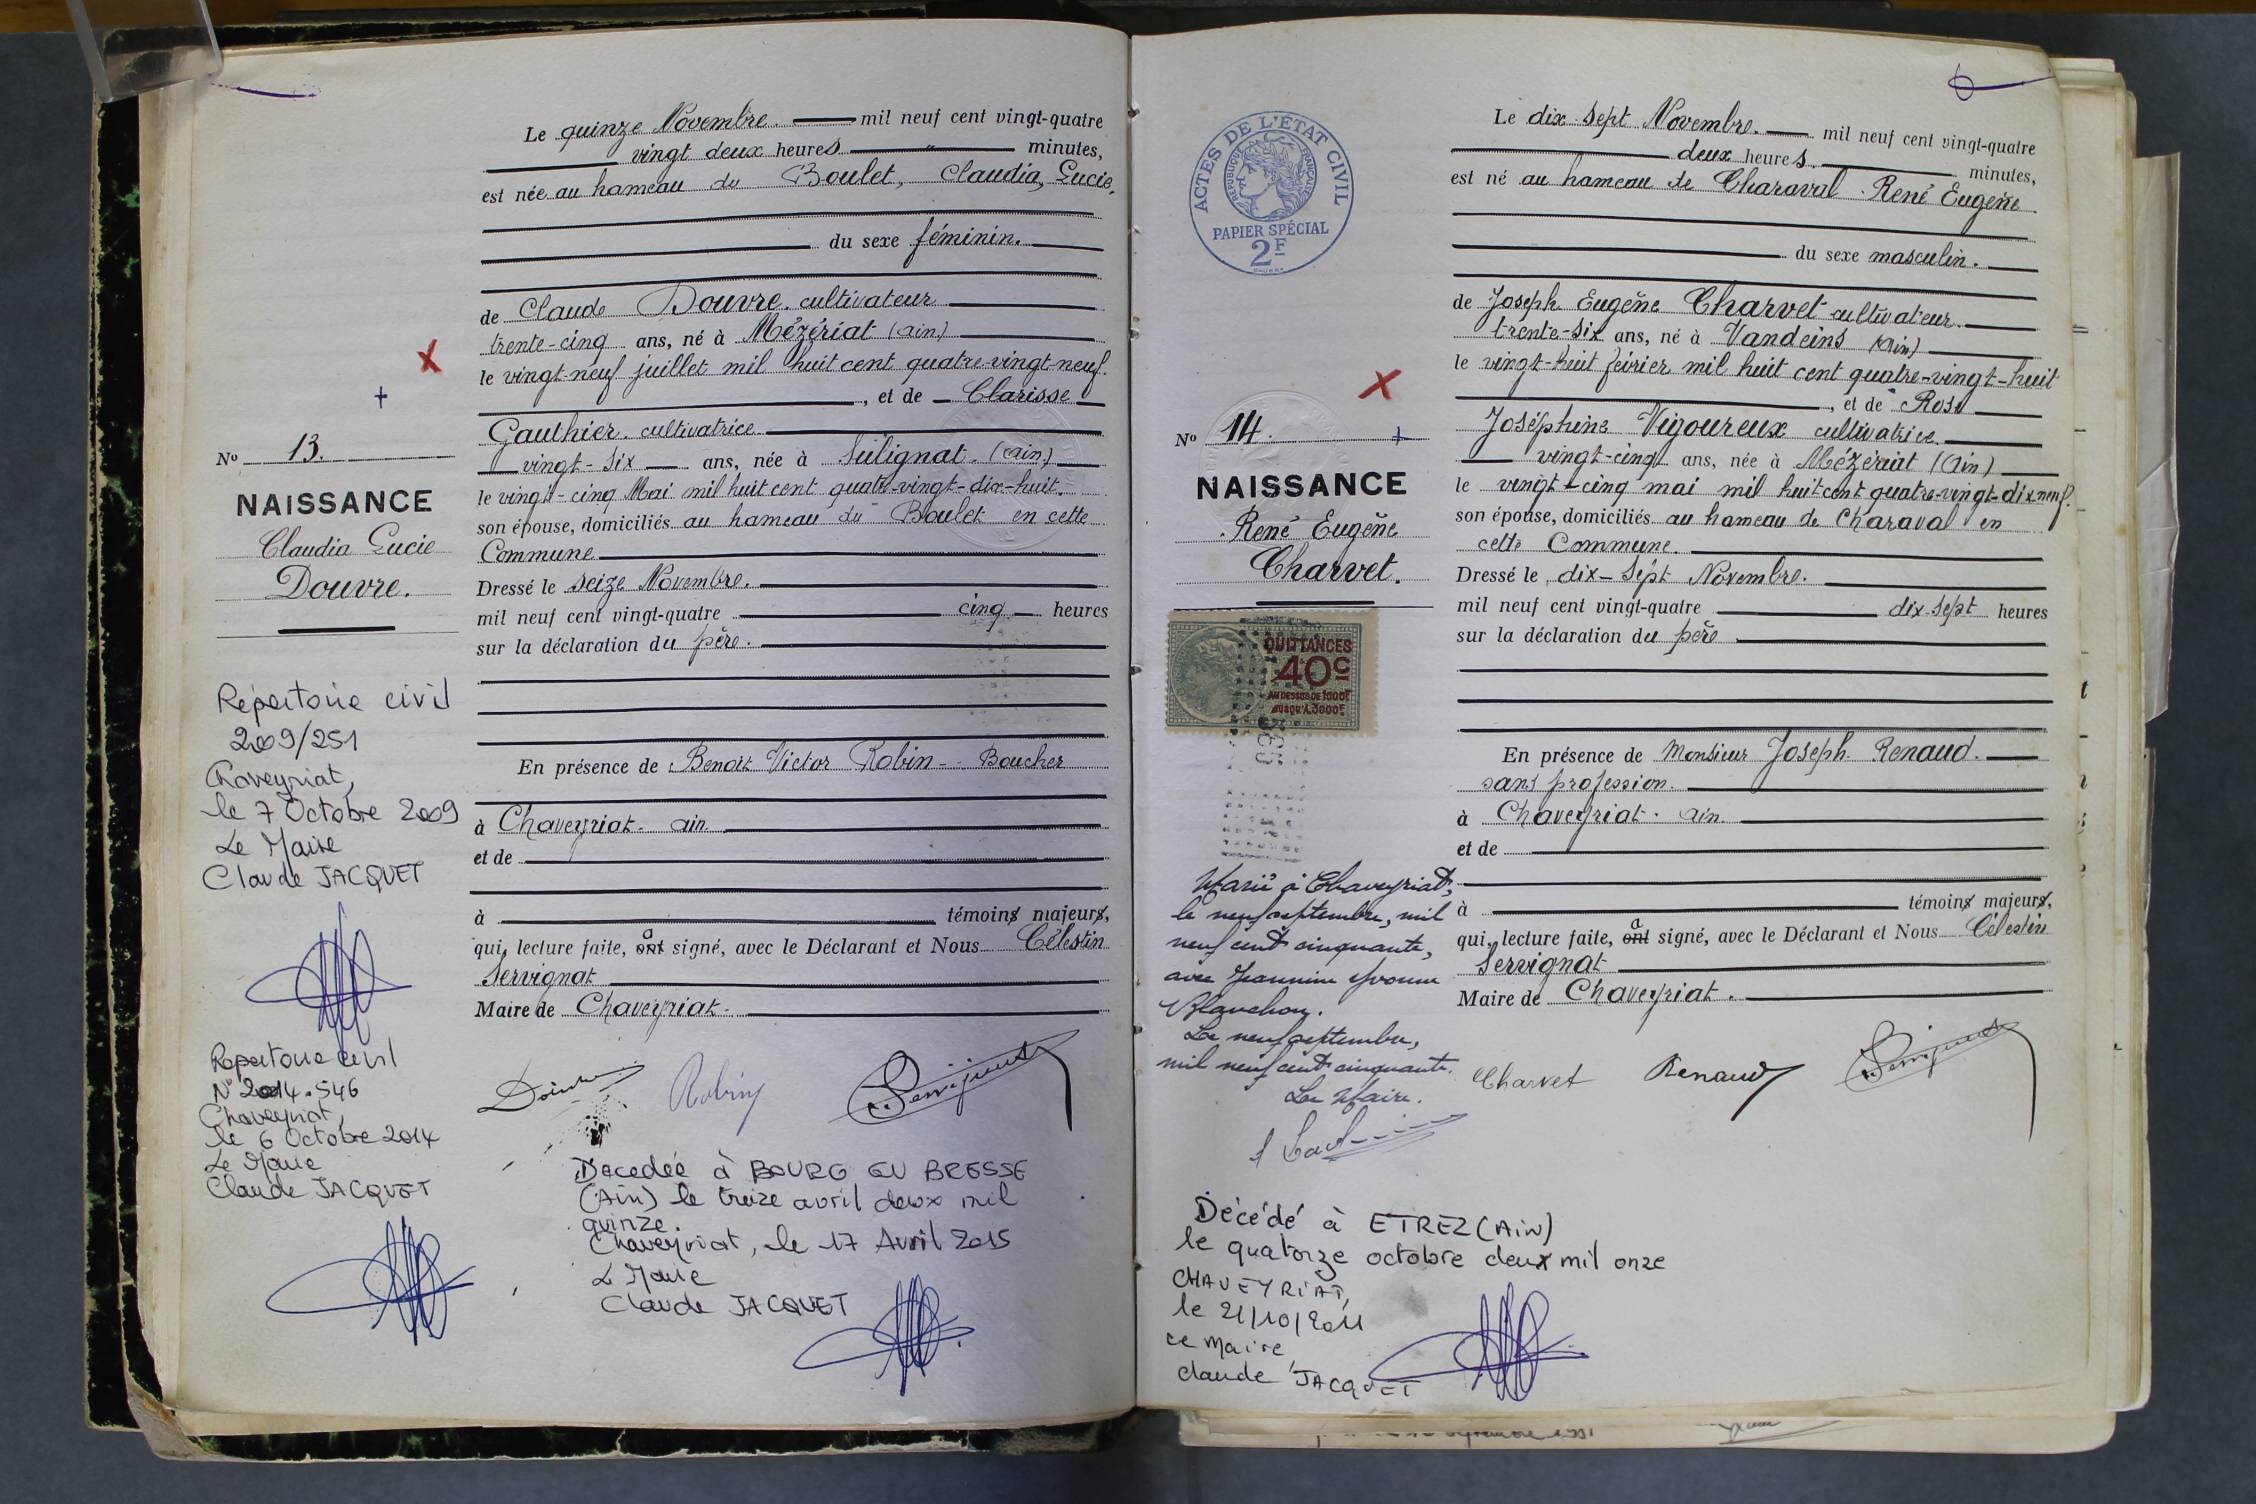 Le quinze Novembre. mil neuf cent vingt-quatre
vingt deux heures " minutes,
est née au hameau du Boulet, Claudia, Lucie,
du sexe féminin.
de Claude Douvre. cultivateur
trente-cinq ans, né à Mézériat (ain)
le vingt-neuf juillet mil huit cent quatre-vingt-neuf.
, et de Clarisse
Gauthier. cultivatrice
vingt-six ans, née à Sulignat. (ain)
le vingt-cinq Mai mil huit cent quatre-vingt-dix-huit.
son épouse, domiciliés au hameau du Boulet en cette
Commune
Dressé le seize Novembre.
mil neuf cent vingt-quatre cinq heures
sur la déclaration du père.
En présence de Benoit Victor Robin - Boucher
à Chaveyriat. ain
et de
à témoins majeurs,
qui, lecture faite, ont a signé, avec le Déclarant et Nous Célestin
Servignat
Maire de Chaveyriat.
Robin
Décédée à BOURG EN BRESSE
(Ain) le treize avril deux mil
quinze.
Chaveyriat, le 17 Avril 2015
Le Maire
Claude JACQUET
No 13.
NAISSANCE
Claudia Lucie
Douvre.
Répertoire civil
2009/251
Chaveyriat,
le 7 Octobre 2009
Le Maire
Claude JACQUET
Repertoire civil
N° 2014.546
Chaveyriat,
le 6 Octobre 2014
Le Maire
Claude JACQUET
6
ACTES DE L'ÉTAT CIVIL
RÉPUBLIQUE FRANÇAISE
PAPIER SPÉCIAL
2F
Le dix-sept Novembre. mil neuf cent vingt-quatre
deux heures. minutes,
est né au hameau de Charaval. René Eugène
du sexe masculin.
de Joseph Eugène Charvet cultivateur
trente-six ans, né à Vandeins (ain)
le vingt-huit février mil huit cent quatre-vingt-huit
, et de Rose
Joséphine Vigoureux cultivatrice.
vingt-cinq ans, née à Mézériat (Ain)
le vingt-cinq mai mil huit cent quatre-vingt-dix neuf.
son épouse, domiciliés au hameau de Charaval en
cette Commune.
Dressé le dix-sept Novembre.
mil neuf cent vingt-quatre dix-sept heures
sur la déclaration du père
En présence de Monsieur Joseph Renaud.
sans profession.
à Chaveyriat. ain.
et de
à témoins majeurs,
qui, lecture faite, ont a signé, avec le Déclarant et Nous Célestin
Servignat
Maire de Chaveyriat.
Charvet Renaud
No 14.
NAISSANCE
René Eugène
Charvet.
QUITTANCES
40c
AU DESSUS DE 1000F
JUSQU'À 3000F
Marié à Chaveyriat,
le neuf septembre, mil
neuf cent cinquante,
avec Jeannine Yvonne
Blanchon.
Le neuf septembre,
mil neuf cent cinquante.
Le Maire.
Décédé à ETREZ (Ain)
le quatorze octobre deux mil onze
CHAVEYRIAT,
le 21/10/2011
Le Maire
Claude JACQUET